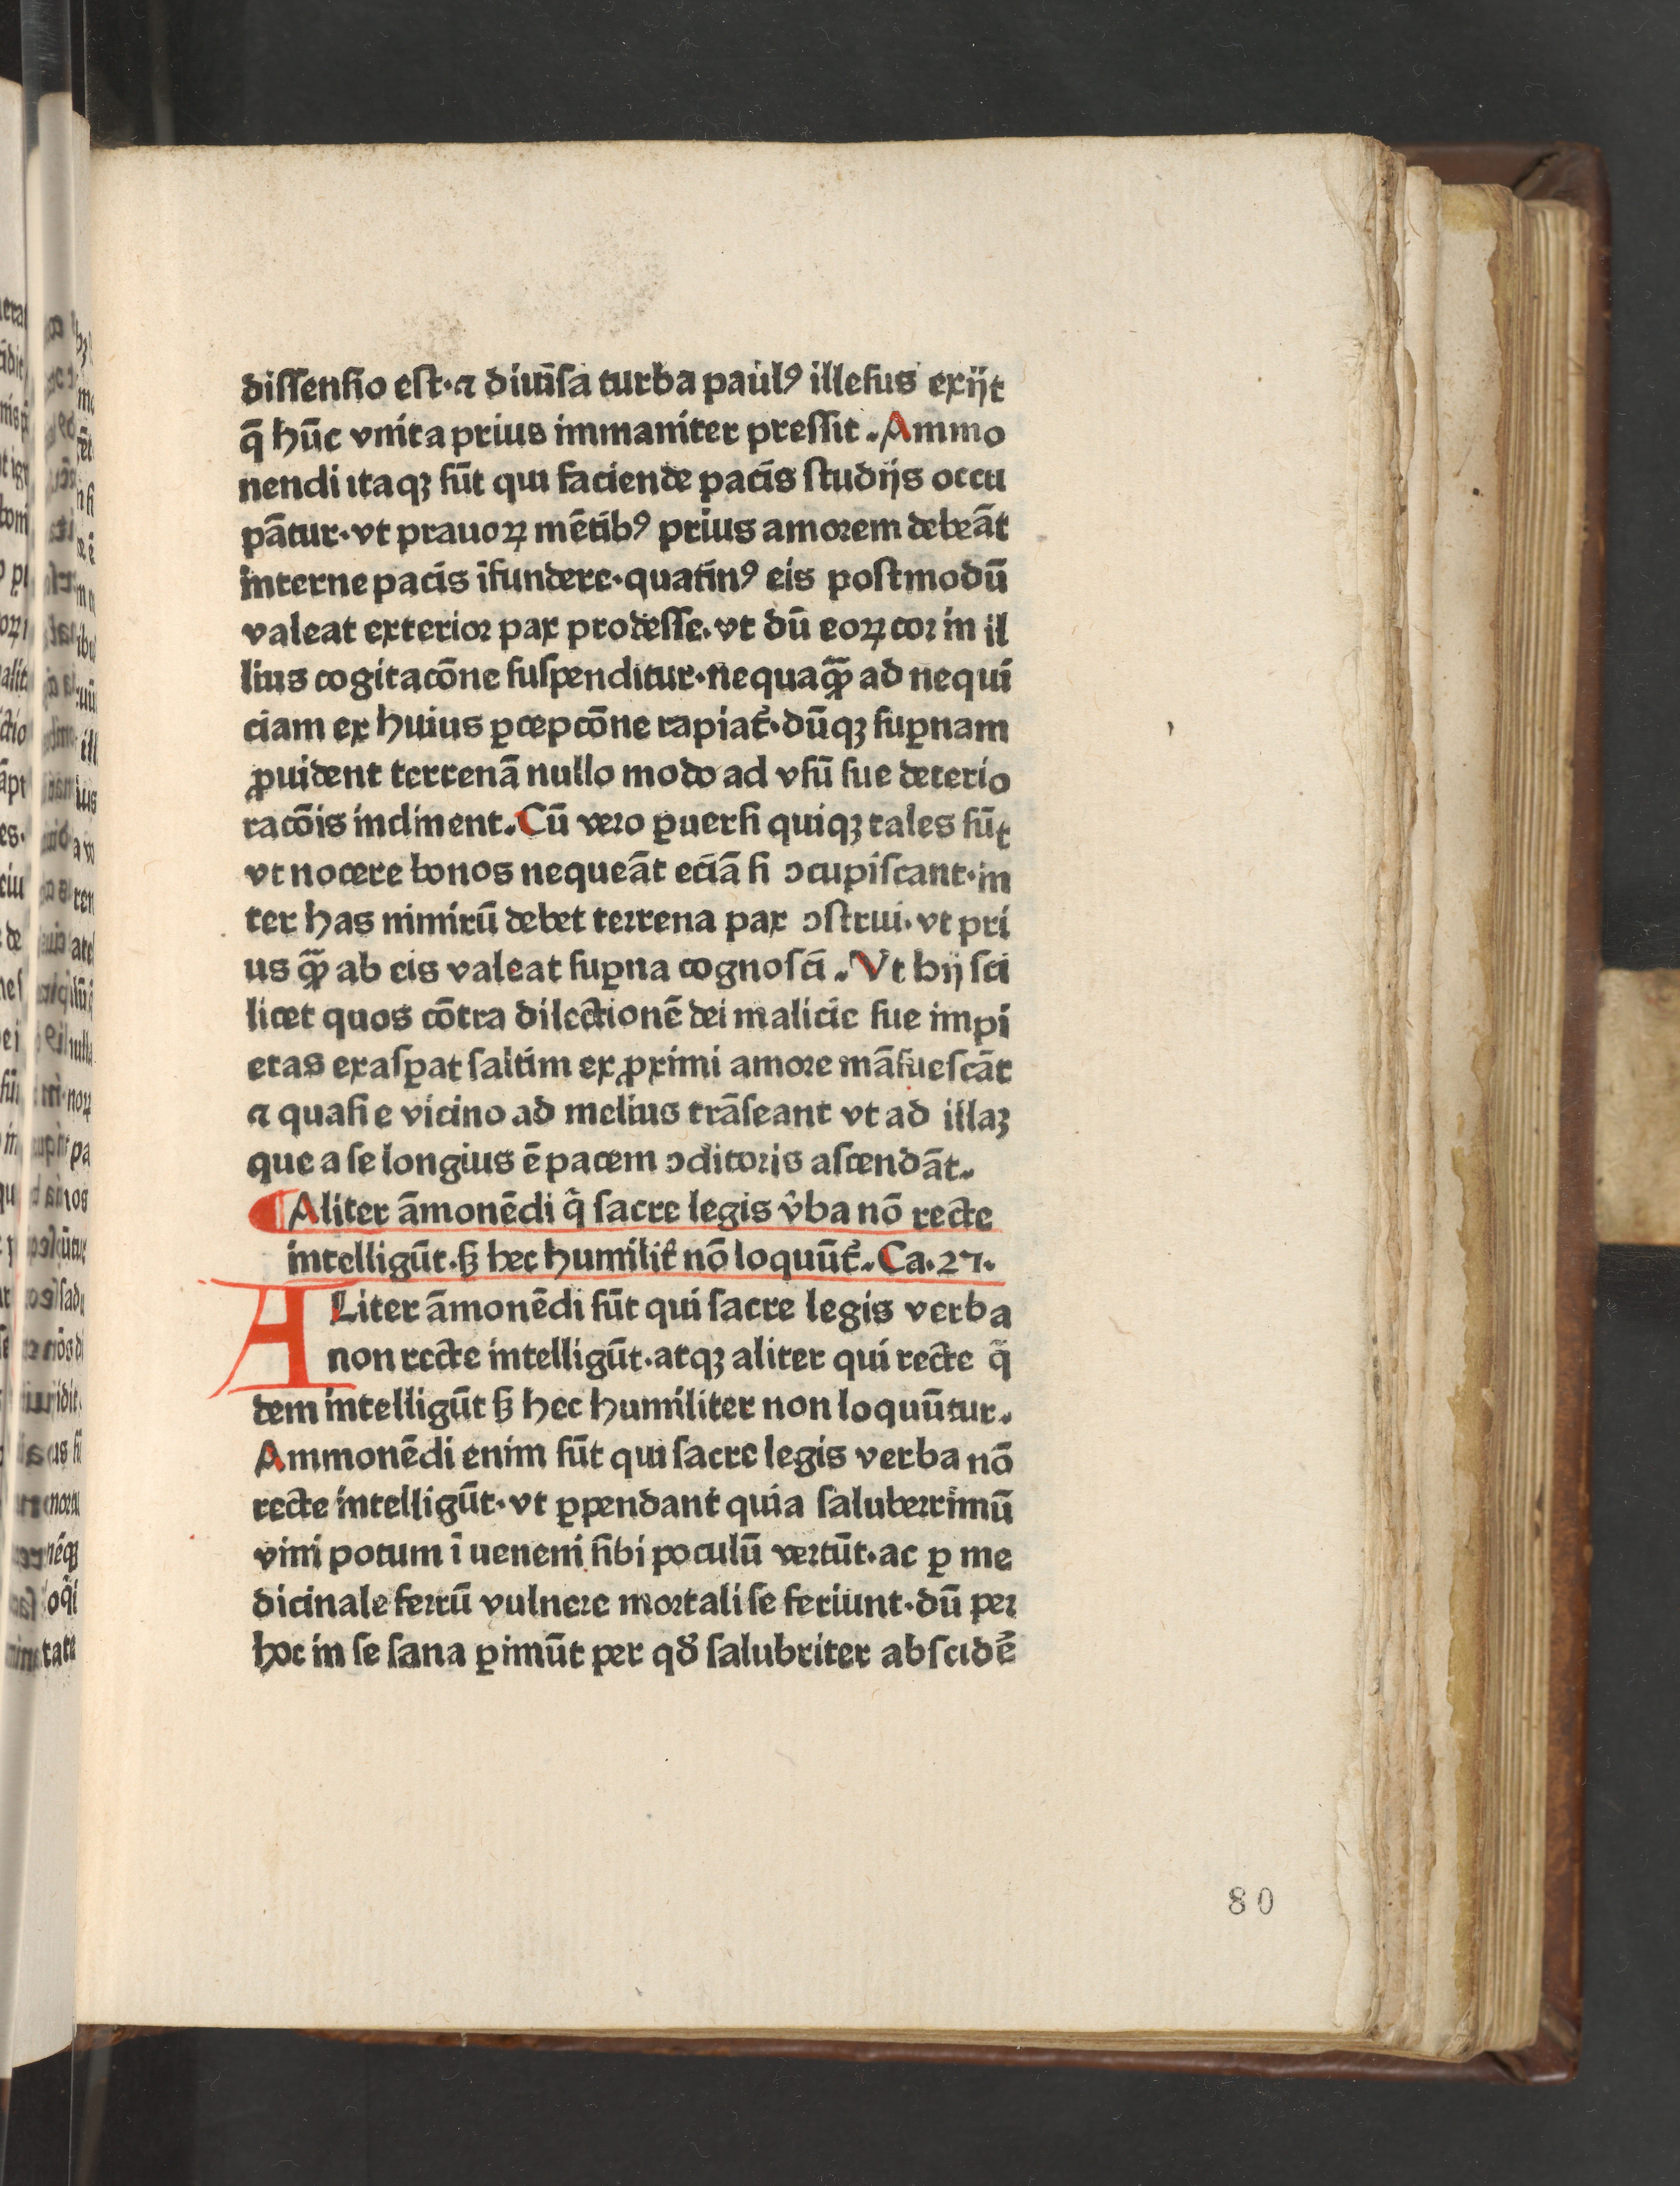 diſſenſio eſt·⁊ diuiſ̄a turba paulꝰ illeſus exijt
q̄ hūc vnita prius immaniter preſſit.Ammo
nendi itaqꝫ ſūt qui faciende pacis ſtudijs occu
pātur·vt prauoꝝ mētibꝰ prius amorem debeāt
interne pacis īfundere·quatinꝰ eis poſtmodū
valeat exterior pax prodeſſe.vt dū eoꝝ cor in il
lius cogitacōne ſuſpenditur·nequaꝙ̄ ad nequi
ciam ex huius ꝑcepcōne rapiat᷑·dūqꝫ ſuꝑnam
ꝓuident terrenā nullo modo ad vſū ſue deterio
racōis inclinent.Cū vero ꝑuerſi quiqꝫ tales ſūt
vt nocere bonos nequeāt eciā ſi ↄcupiſcant·in
ter has nimirū debet terrena pax ↄſtrui·vt pri
us ꝙ̄ ab eis valeat ſuꝑna cognoſci.Vt hij ſci
licet quos cōtra dilectionē dei malicie ſue impi
etas exaſꝑat ſaltim ex ꝓximi amore māſueſcāt
⁊ quaſi e vicino ad melius trāſeant vt ad illaꝫ
que a ſe longius ē pacem ↄditoris aſcendāt.
¶Aliter āmonēdi q̇ ſacre legis v̓ba nō recte
intelligūt·ꝭ hec humilit̓ nō loquūt᷑.Ca.27.
ALiter āmonēdi ſūt qui ſacre legis verba
non recte intelligūt·atqꝫ aliter qui recte q̇
dem intelligūt ꝭ hec humiliter non loquūtur.
Ammonēdi enim ſūt qui ſacre legis verba nō
recte intelligūt·vt ꝑpendant quia ſaluberrimū
vini potum ī ueneni ſibi poculū vertūt·ac ꝑ me
dicinale ferrū vulnere mortali ſe feriunt·dū per
hoc in ſe ſana ꝑimūt per qd̓ ſalubriter abſcidē
80